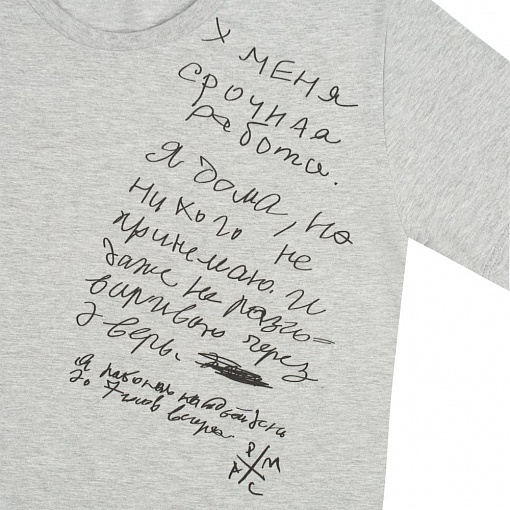 У МЕНЯ
СРОЧНАЯ
работа.
Я дома, но
никого не
принемаю. И
даже не разго-
вариваю через
дверь.
Я работаю каждый день
до 7 часов вечера.
Р М
А С